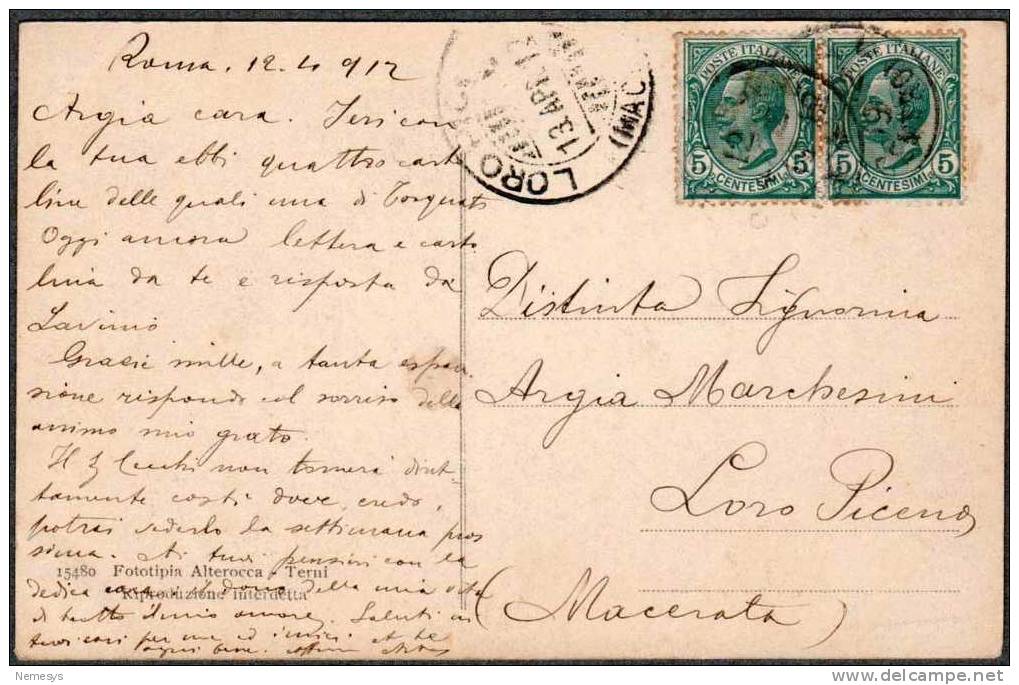 Roma. 12.4 912
Argia cara. Ieri con
la tua ebbi quattro carto
line delle quali una di Torquato
Oggi ancora lettera e carto
lina da te e risposta da
Lavinio
Grazie mille, a tanta espan
sione rispondo col sorriso dello
animo mio grato.
Il Cecchi non tornerà diret
tamente costì dove, credo,
potrai vederlo la settimana pros
sima. Ai tuoi pensieri con la
dedica il dono della mia vita
di tutto il mio amore. Saluti ai
tuoi cari per me ed i miei a te
ogni bene.
15480 Fototipia Alterocca - Terni
Riproduzione Interdetta
LORO
13 APR
(MAC
POSTE ITALIANE
5 5
CENTESIMI
POSTE ITALIANE
5 5
CENTESIMI
Distinta Signorina
Argia Marchesini
Loro Piceno
(Macerata)
Nemesys
www.delcampe.net